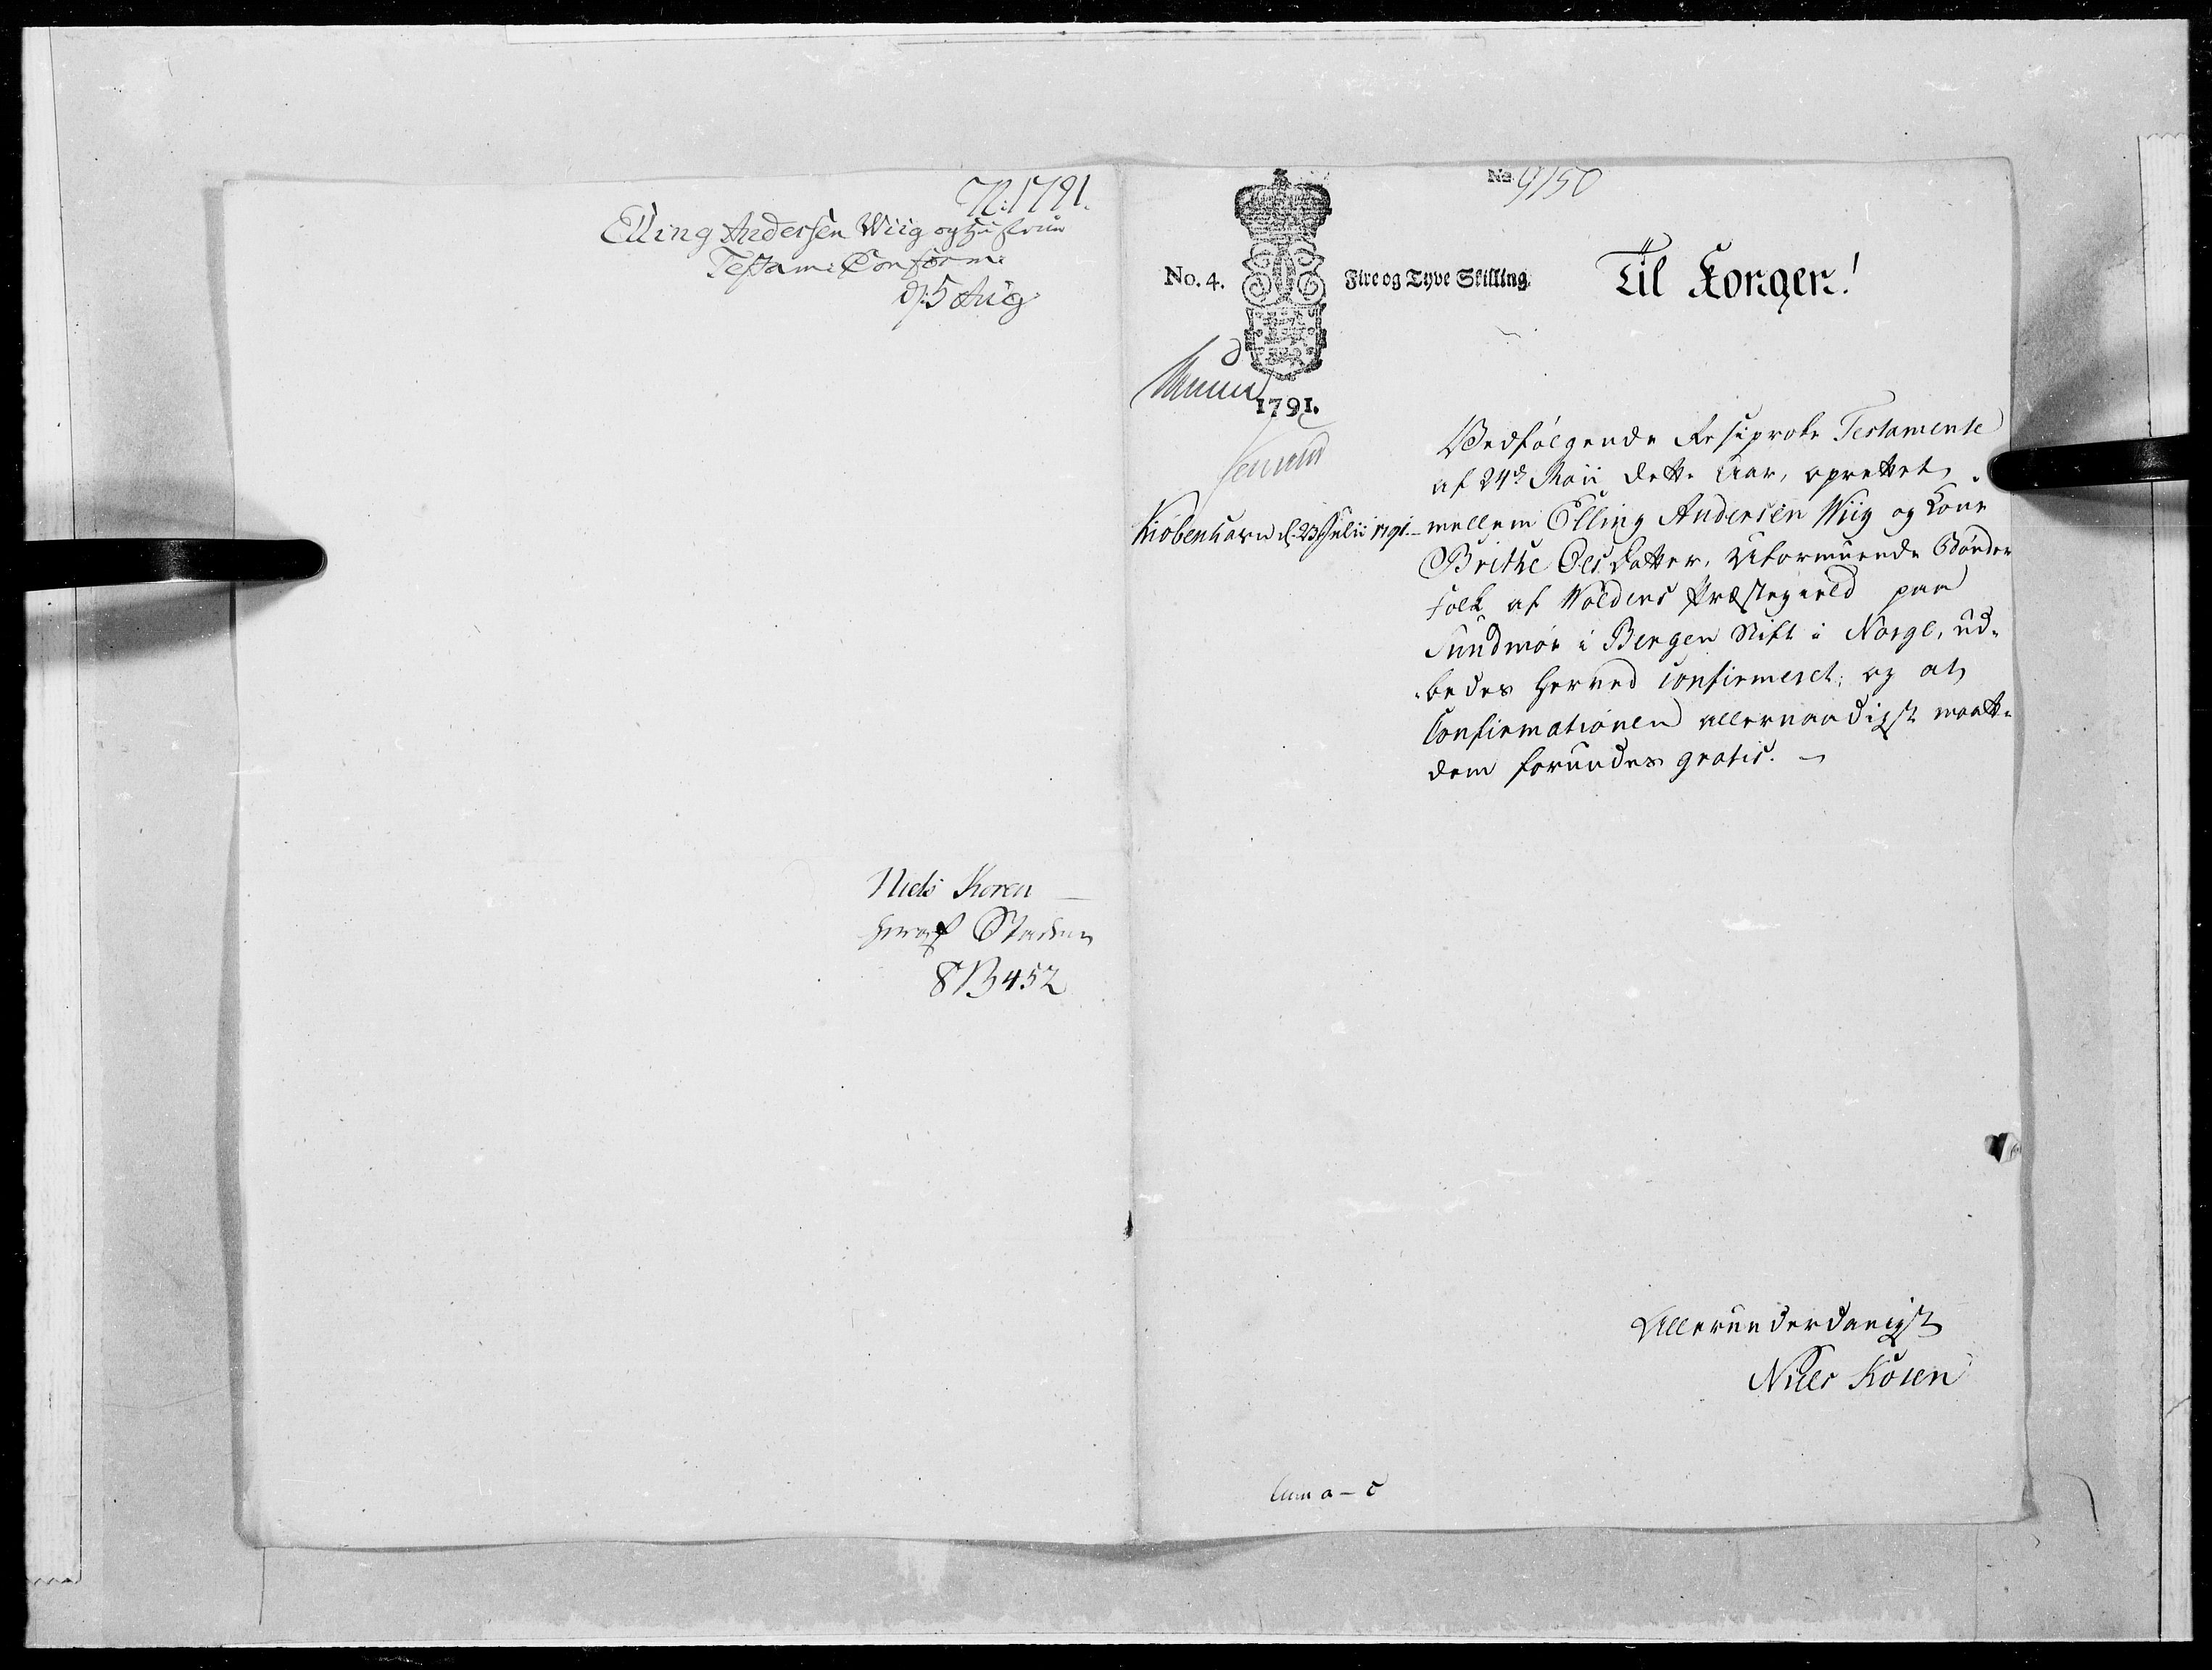 N: 1791.
Elling Andersen Wiig og Hustrue
Testam: Confirm:
d: 5 Aug
Niels Koren
8B452
No 9/50
No. 4.
Fire og Tyve Skilling
Til Kongen!
1791.
Kiöbenhavn d: 23 Julii 1791.
Vedfølgende Resiproke Testamente
af 24de Maii dette Aar, oprettet
mellem Elling Andersen Wiig og Kone
Brithe Ols Datter, Uformuende Bønder
folk af Woldens Præstegield paa
Sundmør i Bergen Stift i Norge, ud-
bedes herved confirmeret; og at
Confirmationen allernaadigst maatte
dem forundes gratis.
Allerunderdanigst
Niels Koren
cum a - c